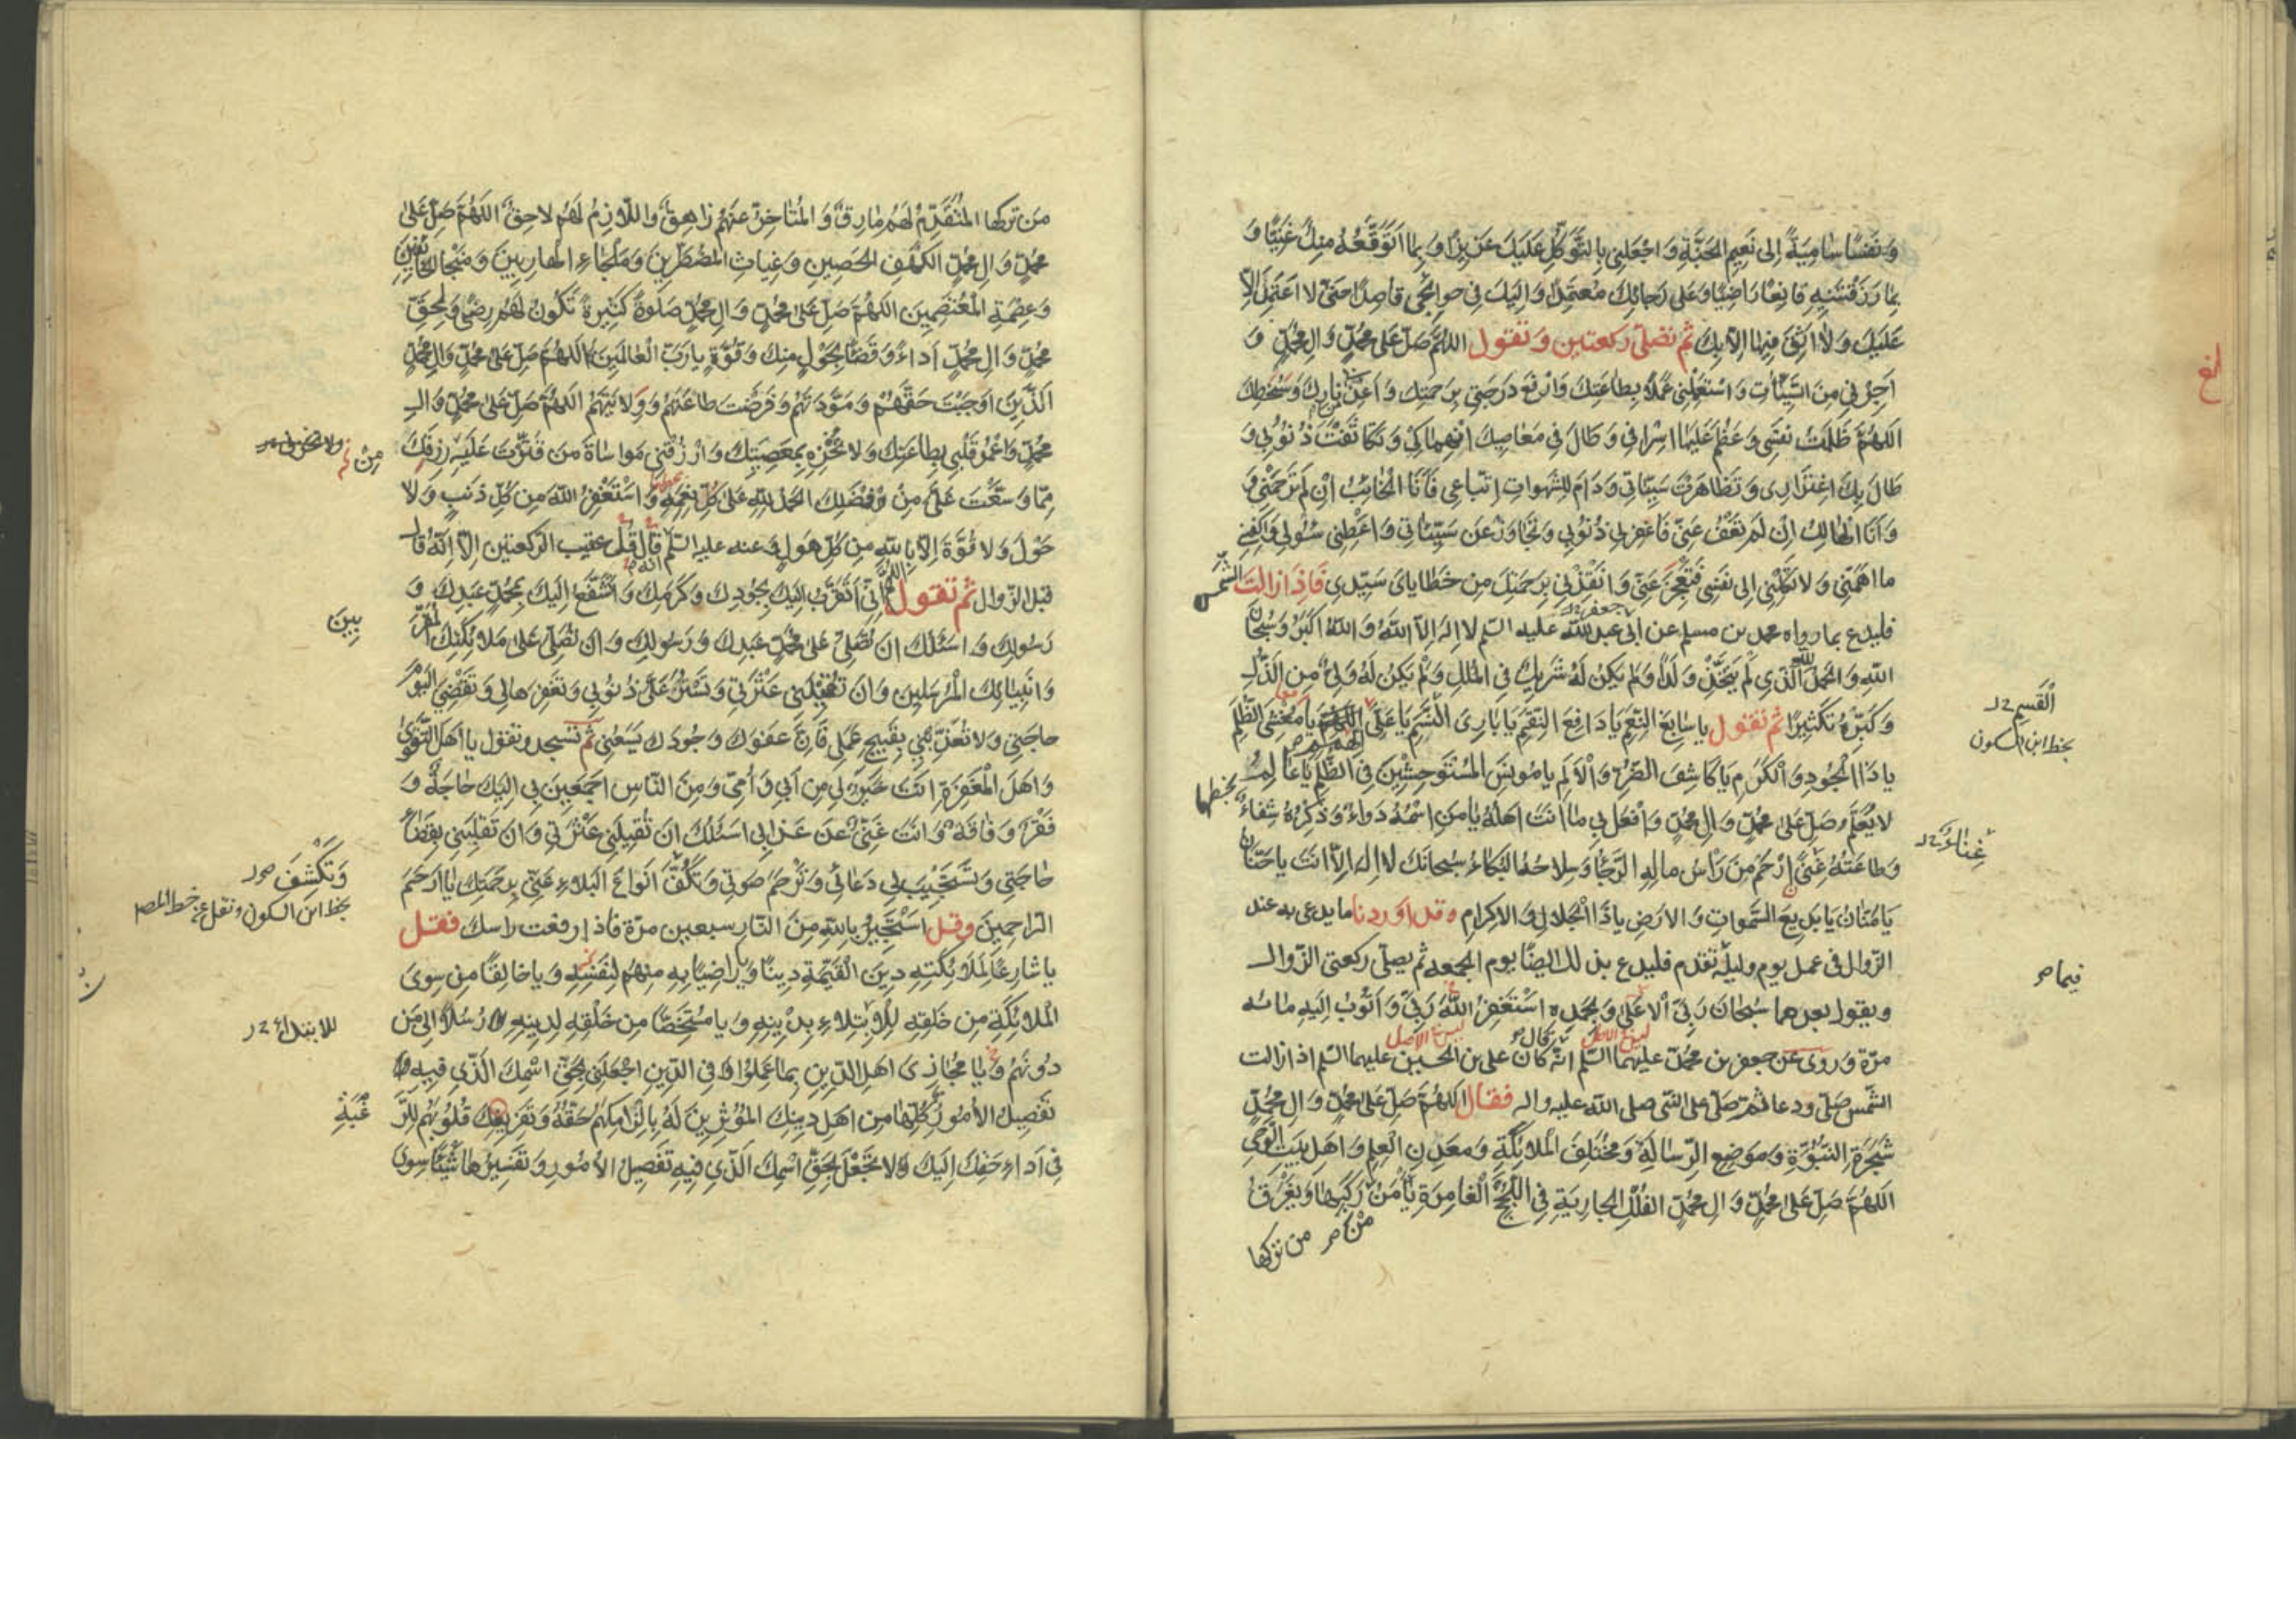 وَنَفْسًا سَامِيَةً إِلى نَعِيمِ الجَنَّةِ وَاجْعَلْنِي بِالتَّوَكُّلِ عَلَيْكَ عَزِيزًا وَبِمَا أَتَوَقَّعُهُ مِنْكَ غَنِيًّا وَ
بِمَا رَزَقْتَنِيهِ قَانِعًا رَاضِيًا وَعَلى رَجَائِكَ مُعْتَمِدًا وَإِلَيْكَ فِي حَوائِجِي قَاصِدًا حَتّى لا أَعْتَمِدَ إِلّا
عَلَيْكَ وَلا أَثِقَ فِيهَا إِلّا بِكَ ثم تصلّى ركعتين وتقول اللّهُمَّ صَلِّ عَلى مُحَمَّدٍ وَآلِ مُحَمَّدٍ وَ
أَجِرْنِي مِنَ السَّيِّئَاتِ وَاسْتَعْمِلْنِي عَمَلًا بِطَاعَتِكَ وَارْفَعْ دَرَجَتِي بِرَحْمَتِكَ وَأَعِذْنِي مِنْ نَارِكَ وَسَخَطِكَ
اللّهُمَّ ظَلَمْتُ نَفْسِي وَعَظُمَ عَلَيْهَا إِسْرَافِي وَطَالَ فِي مَعَاصِيكَ انْهِمَاكِي وَتَكَاثَفَتْ ذُنُوبِي وَ
طَالَ بِكَ اغْتِرَارِي وَتَظَاهَرَتْ سَيِّئَاتِي وَدَامَ لِلشَّهَوَاتِ اتِّبَاعِي فَأَنَا الخَائِبُ إِنْ لَمْ تَرْحَمْنِي
وَأَنَا الهَالِكُ إِنْ لَمْ تَعْفُ عَنِّي فَاغْفِرْ لِي ذُنُوبِي وَتَجَاوَزْ عَنْ سَيِّئَاتِي وَأَعْطِنِي سُؤْلِي وَاكْفِنِي
مَا أَهَمَّنِي وَلا تَكِلْنِي إِلى نَفْسِي فَتَعْجِزَ عَنِّي وَأَنْقِذْنِي بِرَحْمَتِكَ مِنْ خَطَايَايَ سَيِّدِي فَإِذَا زَالَتِ الشَّمْسُ
فليدع بما رواه محمد بن مسلم عن أبى عبدالله عليه السّلم لا إِلهَ إِلّا اللّهُ وَاللّهُ أَكْبَرُ وَسُبْحَانَ
اللّهِ وَالحَمْدُ لِلّهِ الَّذِي لَمْ يَتَّخِذْ وَلَدًا وَلَمْ يَكُنْ لَهُ شَرِيكٌ فِي المُلْكِ وَلَمْ يَكُنْ لَهُ وَلِيٌّ مِنَ الذُّلِّ
وَكَبِّرْهُ تَكْبِيرًا ثم تقول يَا سَابِغَ النِّعَمِ يَا دَافِعَ النِّقَمِ يَا بَارِئَ النَّسَمِ يَا عَلِيَّ الهِمَمِ يَا مُغْشِيَ الظُّلَمِ
القَسَمِ
بخط ابن السكون
يَا ذَا الجُودِ وَالكَرَمِ يَا كَاشِفَ الضُّرِّ وَالأَلَمِ يَا مُونِسَ المُسْتَوْحِشِينَ فِي الظُّلَمِ يَا عَالِمًا
لا يُعَلَّمُ صَلِّ عَلى مُحَمَّدٍ وَآلِ مُحَمَّدٍ وَافْعَلْ بِي مَا أَنْتَ أَهْلُهُ يَا مَنِ اسْمُهُ دَوَاءٌ وَذِكْرُهُ شِفَاءٌ
بخطهما
وَطَاعَتُهُ غِنًى ارْحَمْ مَنْ رَأْسُ مَالِهِ الرَّجَاءُ وَسِلاحُهُ البُكَاءُ سُبْحَانَكَ لا إِلهَ إِلّا أَنْتَ يَا حَنَّانُ
غناء
يَا مَنَّانُ يَا بَدِيعَ السَّموَاتِ وَالأَرْضِ يَا ذَا الجَلالِ وَالإِكْرَامِ وقد اوردنا ما يدعى به عند
الزّوال فى عمل يوم وليلة تقدم فليدع بذلك ايضًا يوم الجمعة ثم يصلّى ركعتى الزّوال
فيما
ويقول بعدهما سُبْحَانَ رَبِّيَ الأَعْلى وَبِحَمْدِهِ أَسْتَغْفِرُ اللّهَ رَبِّي وَأَتُوبُ إِلَيْهِ مائة
مرّة وروى عن جعفر بن محمّد عليهما السّلم انّه كان على بن الحسين عليهما السّلم اذا زالت
الشّمس صلّى ودعا ثم صلّى على النّبى صلى الله عليه واله فقال اللّهُمَّ صَلِّ عَلى مُحَمَّدٍ وَآلِ مُحَمَّدٍ
شَجَرَةِ النُّبُوَّةِ وَمَوْضِعِ الرِّسَالَةِ وَمُخْتَلَفِ المَلائِكَةِ وَمَعْدِنِ العِلْمِ وَأَهْلِ بَيْتِ الوَحْيِ
اللّهُمَّ صَلِّ عَلى مُحَمَّدٍ وَآلِ مُحَمَّدٍ الفُلْكِ الجَارِيَةِ فِي اللُّجَجِ الغَامِرَةِ يَأْمَنُ مَنْ رَكِبَهَا وَيَغْرَقُ
من تركها
مَنْ تَرَكَهَا المُتَقَدِّمُ لَهُمْ مَارِقٌ وَالمُتَأَخِّرُ عَنْهُمْ زَاهِقٌ وَاللّازِمُ لَهُمْ لاحِقٌ اللّهُمَّ صَلِّ عَلى
مُحَمَّدٍ وَآلِ مُحَمَّدٍ الكَهْفِ الحَصِينِ وَغِيَاثِ المُضْطَرِّينَ وَمَلْجَاءِ الهَارِبِينَ وَمَنْجَا الخَائِفِينَ
وَعِصْمَةِ المُعْتَصِمِينَ اللّهُمَّ صَلِّ عَلى مُحَمَّدٍ وَآلِ مُحَمَّدٍ صَلوةً كَثِيرَةً تَكُونُ لَهُمْ رِضًى وَلِحَقِّ
مُحَمَّدٍ وَآلِ مُحَمَّدٍ أَدَاءً وَقَضَاءً بِحَوْلٍ مِنْكَ وَقُوَّةٍ يَا رَبَّ العَالَمِينَ اللّهُمَّ صَلِّ عَلى مُحَمَّدٍ وَآلِ مُحَمَّدٍ
الَّذِينَ أَوْجَبْتَ حَقَّهُمْ وَمَوَدَّتَهُمْ وَفَرَضْتَ طَاعَتَهُمْ وَوَلايَتَهُمْ اللّهُمَّ صَلِّ عَلى مُحَمَّدٍ وَآلِ
مُحَمَّدٍ وَاعْمُرْ قَلْبِي بِطَاعَتِكَ وَلا تُخْزِهِ بِمَعْصِيَتِكَ وَارْزُقْنِي مُوَاسَاةَ مَنْ قَتَّرْتَ عَلَيْهِ رِزْقَكَ
مِنْ
مِمَّا وَسَّعْتَ عَلَيَّ مِنْ فَضْلِكَ الحَمْدُ لِلّهِ عَلى كُلِّ نِعْمَةٍ وَأَسْتَغْفِرُ اللّهَ مِنْ كُلِّ ذَنْبٍ وَلا
حَوْلَ وَلا قُوَّةَ إِلّا بِاللّهِ مِنْ كُلِّ هَوْلٍ وعنه عليه السّلم قال قل عقيب الركعتين الّا انّه قال
قبل الزّوال ثم تقول اللّهُمَّ إِنِّي أَتَقَرَّبُ إِلَيْكَ بِجُودِكَ وَكَرَمِكَ وَأَتَشَفَّعُ إِلَيْكَ بِمُحَمَّدٍ عَبْدِكَ وَ
رَسُولِكَ وَأَسْئَلُكَ أَنْ تُصَلِّيَ عَلى مُحَمَّدٍ عَبْدِكَ وَرَسُولِكَ وَأَنْ تُصَلِّيَ عَلى مَلائِكَتِكَ المُقَرَّ
بِينَ
وَأَنْبِيَائِكَ المُرْسَلِينَ وَأَنْ تُقِيلَنِي عَثْرَتِي وَتَسْتُرَ عَلَيَّ ذُنُوبِي وَتَغْفِرَهَا لِي وَتَقْضِيَ اليَوْمَ
حَاجَتِي وَلا تُعَذِّبَنِي بِقَبِيحِ عَمَلِي فَإِنَّ عَفْوَكَ وَجُودَكَ يَسَعُنِي ثم تسجد وتقول يَا أَهْلَ التَّقْوى
وَأَهْلَ المَغْفِرَةِ أَنْتَ خَيْرٌ لِي مِنْ أَبِي وَأُمِّي وَمِنَ النَّاسِ أَجْمَعِينَ بِي إِلَيْكَ حَاجَةٌ وَ
فَقْرٌ وَفَاقَةٌ وَأَنْتَ غَنِيٌّ عَنْ عَذَابِي أَسْئَلُكَ أَنْ تُقِيلَنِي عَثْرَتِي وَأَنْ تَقْلِبَنِي بِقَضَاءِ
حَاجَتِي وَتَسْتَجِيبَ لِي دُعَائِي وَتَرْحَمَ صَوْتِي وَتَكُفَّ أَنْوَاعَ البَلاءِ عَنِّي بِرَحْمَتِكَ يَا أَرْحَمَ
وَتَكْشِفَ
بخط ابن السكون ونقل عن خط المصـ
الرَّاحِمِينَ وقل أَسْتَجِيرُ بِاللّهِ مِنَ النَّارِ سبعين مرّة فاذا رفعت راسك فقل
يَا شَارِعًا لِمَلائِكَتِهِ دِينَ القَيِّمَةِ دِينًا وَيَا رَاضِيًا بِهِ مِنْهُمْ لِنَفْسِهِ وَيَا خَالِقًا مَنْ سِوَى
المَلائِكَةِ مِنْ خَلْقِهِ لِلابْتِلاءِ بِدِينِهِ وَيَا مُسْتَخِصًّا مِنْ خَلْقِهِ لِدِينِهِ رُسُلًا إِلى مَنْ
للابتداء
دُونَهُمْ وَيَا مُجَازِيَ أَهْلِ الدِّينِ بِمَا عَمِلُوا فِي الدِّينِ اجْعَلْنِي بِحَقِّ اسْمِكَ الَّذِي فِيهِ
تَفْصِيلُ الأُمُورِ كُلِّهَا مِنْ أَهْلِ دِينِكَ المُؤْثِرِينَ لَهُ بِإِلْزَامِكَهُمْ حَقَّهُ وَتَفْرِيغِكَ قُلُوبَهُمْ لِلرَّ
غْبَةِ
فِي أَدَاءِ حَقِّكَ إِلَيْكَ وَلا تَجْعَلْ بِحَقِّ اسْمِكَ الَّذِي فِيهِ تَفْصِيلُ الأُمُورِ وَتَفْسِيرُهَا شَيْئًا سِوى